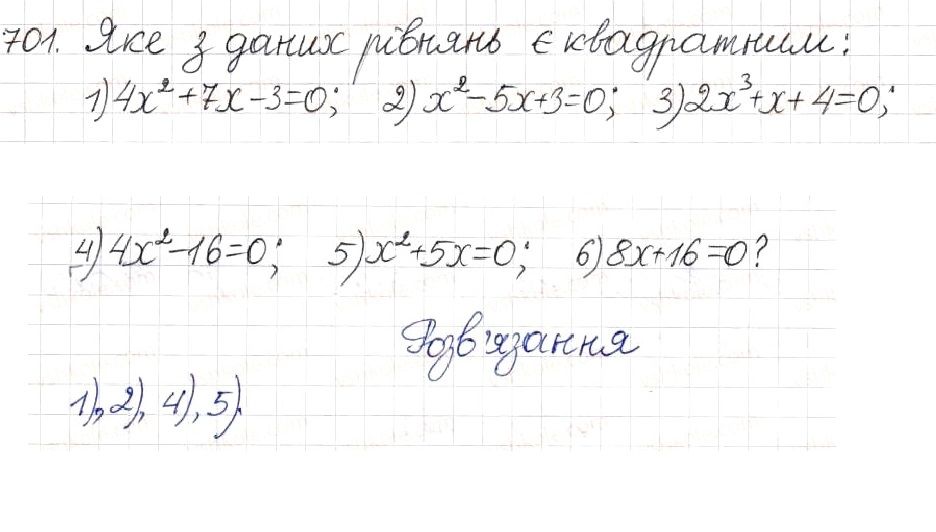 701. Яке з даних рівнянь є квадратним:
1) 4x²+7x-3=0; 2) x²-5x+3=0; 3) 2x³+x+4=0;
4) 4x²-16=0; 5) x²+5x=0; 6) 8x+16=0?
Розв'язання
1), 2), 4), 5).